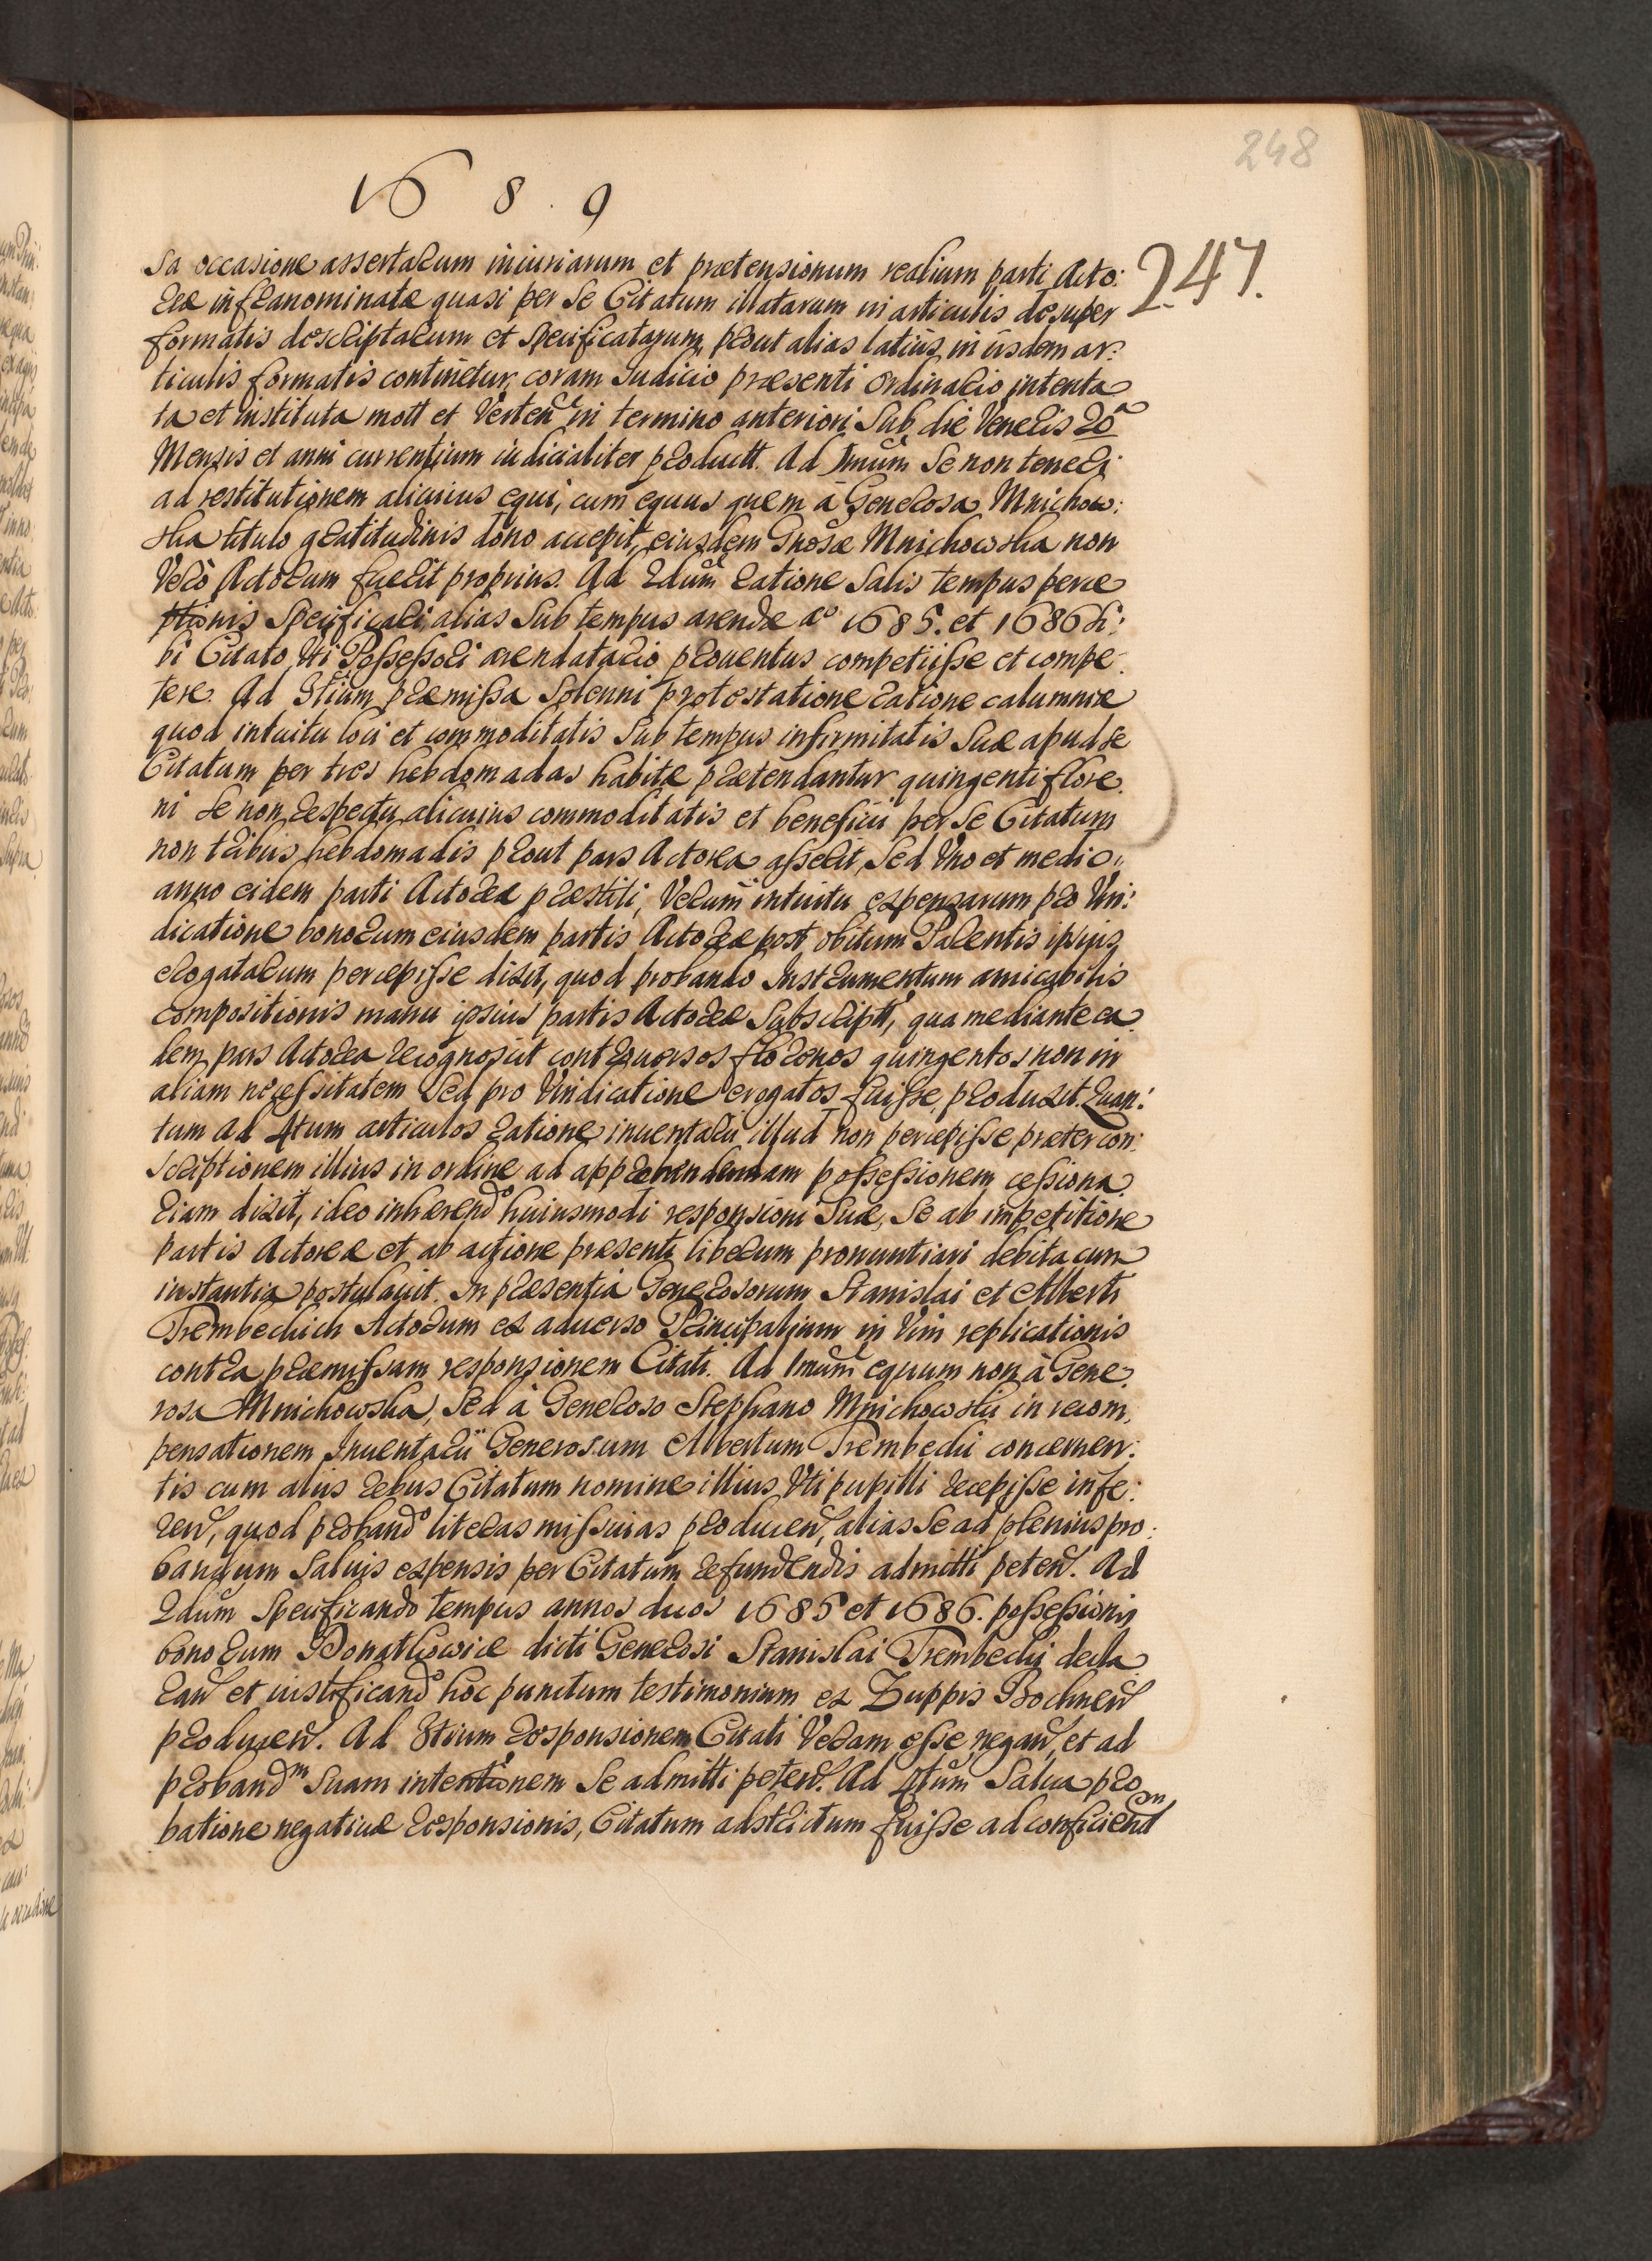 248
1689
247.
sa occasione assertarum iniuriarum et prætensionum realium parti Acto:
reæ infranominatæ quasi per se Citatum illatarum in articulis desuper
formatis descriptarum et specificatarum, prout alias latius in iisdem ar:
ticulis formatis continetur, coram Iudicio præsenti ordinario intenta
ta et instituta mott et Verten in termino anteriori Sub die Veneris 20a
Mensis et anni currentium iudicialiter product. Ad 1mum Se non teneri
ad restitutionem alicuius equi, cum equus quem à Generosa Mnichow:
ska titulo gratitudinis dono accepit, eiusdem Gnosæ Mnichowska non
Verò Actorum fuerit proprius. Ad 2dum ratione Salis tempus perce
ptionis Specificari, alias Sub tempus arendæ Ao 1685. et 1686 Si:
bi Citato Uti Possessori arendatario proventus competiisse et compe:
tere. Ad 3tium præmissa Solenni protestatione ratione calumniæ
quod intuitu loci et commoditatis Sub tempus infirmitatis Suæ apud se
Citatum per tres hebdomadas habitæ prætendantur quingenti flore:
ni se non respectu alicuius commoditatis et beneficii per se Citatum
non tribus hebdomadis prout pars Actorea asserit, Sed Uno et medio
anno eidem parti Actoreæ præstiti, Verum intuitu expensarum pro Vin:
dicatione bonorum eiusdem partis Actoreæ post obitum Parentis ipsius
erogatarum percepisse dixit, quod probando Instrumentum amicabilis
compositionis manu ipsius partis Actoreæ Subscript, qua mediante ea
dem pars Actorea recognoscit controversos florenos quingentos non in
aliam necessitatem Sed pro Vindicatione erogatos fuisse, produxit. Quan:
tum ad 4tum articulos ratione inventarii illud non percepisse præter con:
scriptionem illius in ordine ad apprehendendam possessionem cessiona
riam dixit, ideo inhærendo huiusmodi responsioni Suæ, Se ab impetitione
partis Actoreæ et ab actione præsenti liberum pronuntiari debita cum
instantia postulavit. In præsentia Generosorum Stanislai et Alberti
Trembeckich Actorum ex adverso Principalium in Vim replicationis
contra præmissam responsionem Citati. Ad 1mum equum non à Gene:
rosa Mnichowska, Sed à Generoso Stephano Mnichowski in recom:
pensationem Inventarii Generosum Albertum Trembecki concernen:
tis cum aliis rebus Citatum nomine illius Uti pupilli recepisse infe:
ren, quod probando literas missivas producen, alias Se ad plenius pro:
bandum Salvis expensis per Citatum refundendis admitti peten. Ad
2dum Specificando tempus annos duos 1685 et 1686. possessionis
bonorum Donatkowice dicti Generosi Stanislai Trembecki decla
ran et iustificando hoc punctum testimonium ex Zuppis Bochnen
producen. Ad 3tium responsionem Citati Veram esse negan, et ad
probandm Suam intentionem Se admitti peten. Ad 4tum Salva pro
batione negativæ responsionis, Citatum adstrictum fuisse ad conficiendm